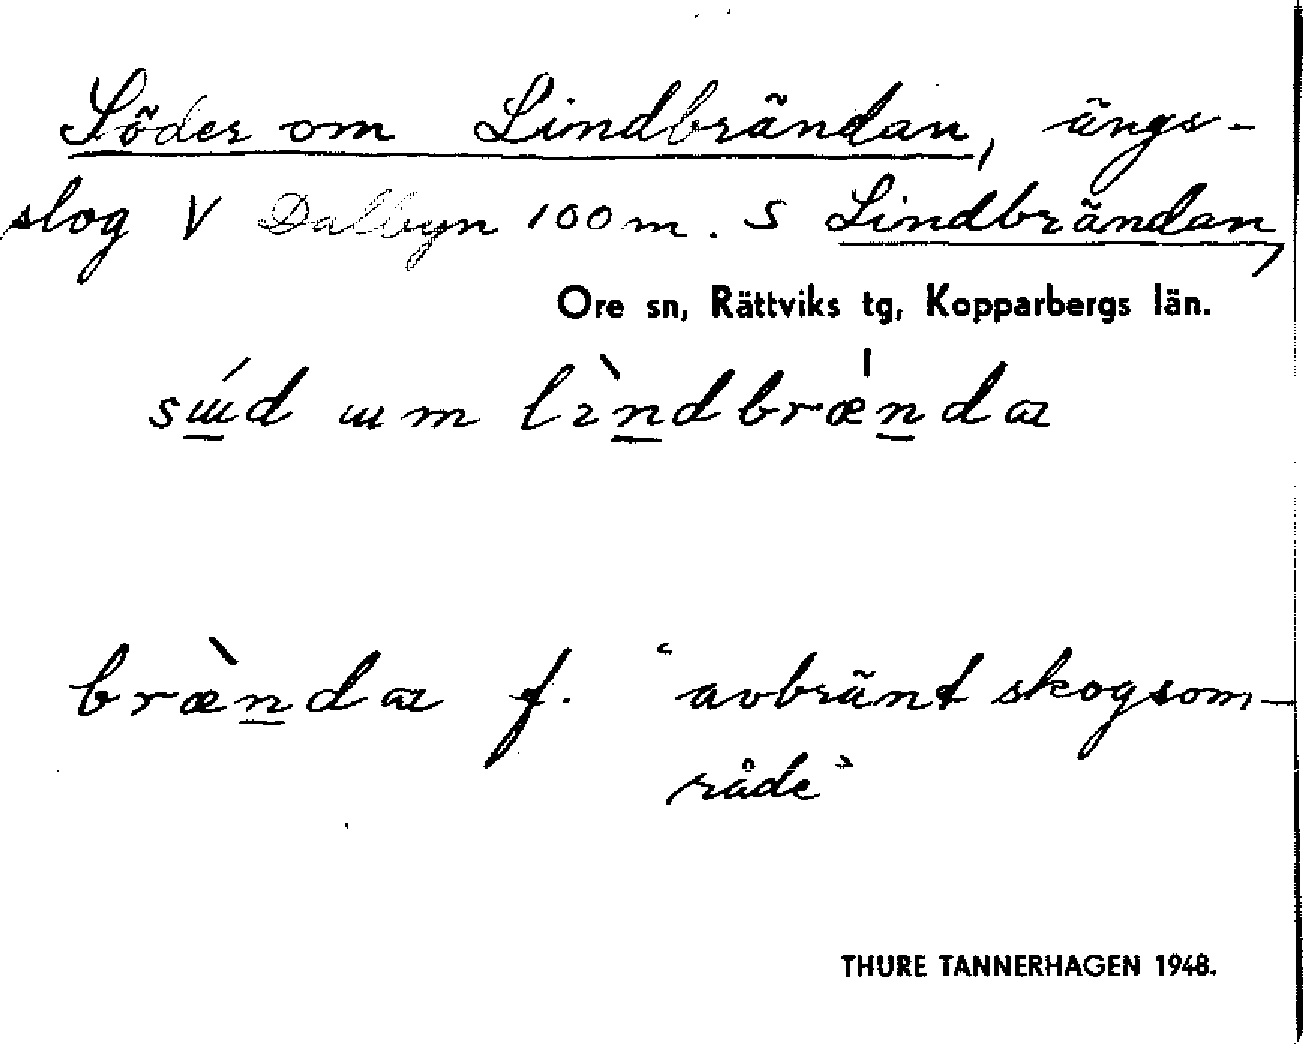 Söder om Lindbrändan, ängs-
slog V Dalbyn 100 m. S Lindbrändan,
Ore sn, Rättviks tg, Kopparbergs län.
sɯ́d ɯm lɪ̀ndbræ̀nda
bræ̀nda f. "avbränt skogsom-
råde"
THURE TANNERHAGEN 1948.